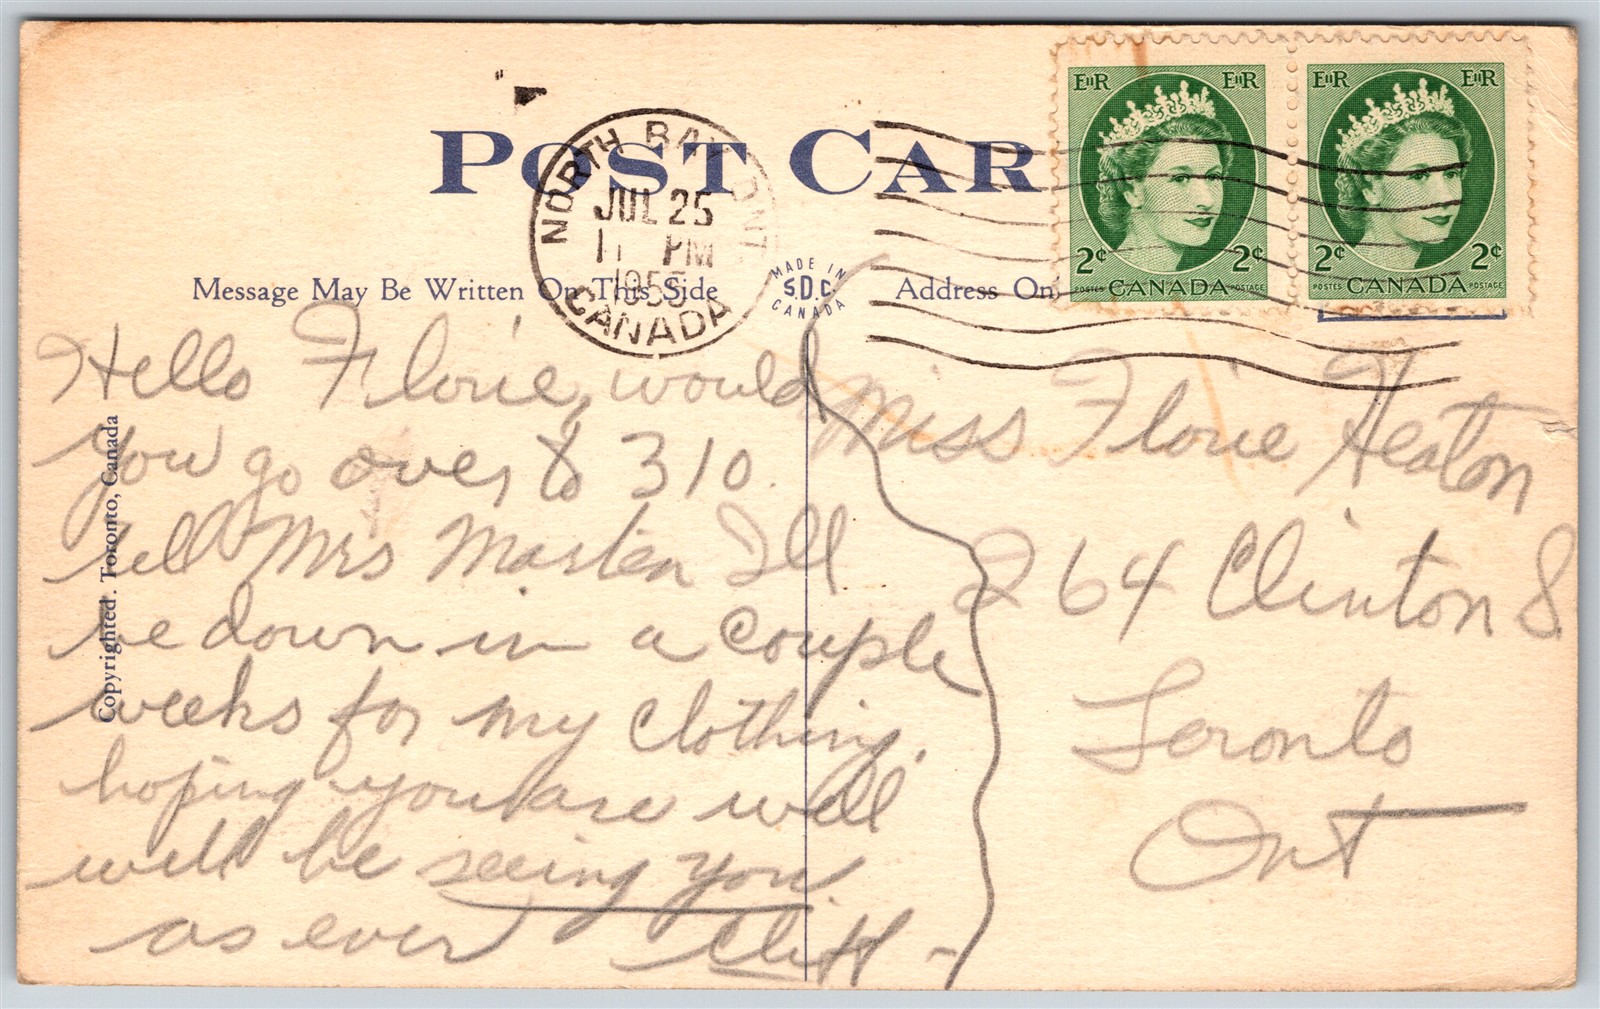 POST CAR
NORTH BAY ONT.
JUL 25
11 PM
1955
CANADA
EIIR EIIR
2¢ 2¢
POSTES CANADA POSTAGE
EIIR EIIR
2¢ 2¢
POSTES CANADA POSTAGE
Message May Be Written On This Side
MADE IN
S.D.C.
CANADA
Address On
Copyrighted. Toronto, Canada
Hello Florie, would
you go over to 310
tell Mrs Marten Ill
be down in a couple
weeks for my clothing.
hoping you are well
will be seeing you
as ever Cliff -
Miss Florie Heaton
264 Clinton S.
Toronto
Ont